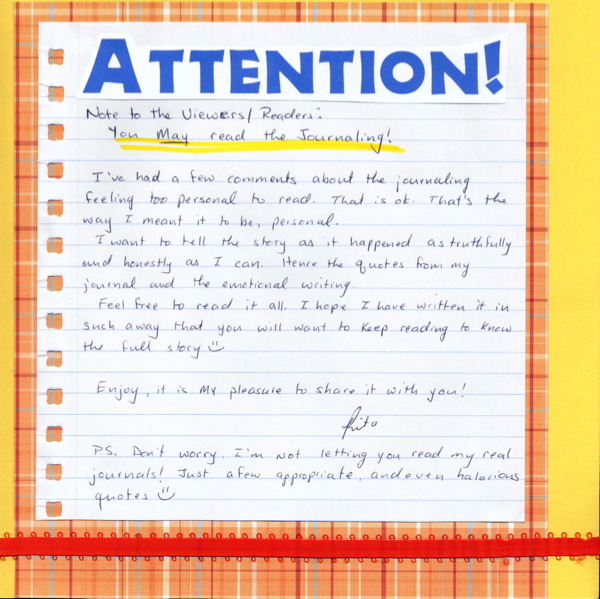 ATTENTION!
Note to the Viewers/Readers:
You May read the Journaling!
I've had a few comments about the journaling
feeling too personal to read. That is ok. That's the
way I meant it to be, personal.
I want to tell the story as it happened as truthfully
and honestly as I can. Hence the quotes from my
journal and the emotional writing.
Feel free to read it all. I hope I have written it in
such away that you will want to keep reading to know
the full story
Enjoy, it is my pleasure to share it with you!
Rita
PS. Don't worry, I'm not letting you read my real
journals! Just afew appropriate, and even halarious
quotes